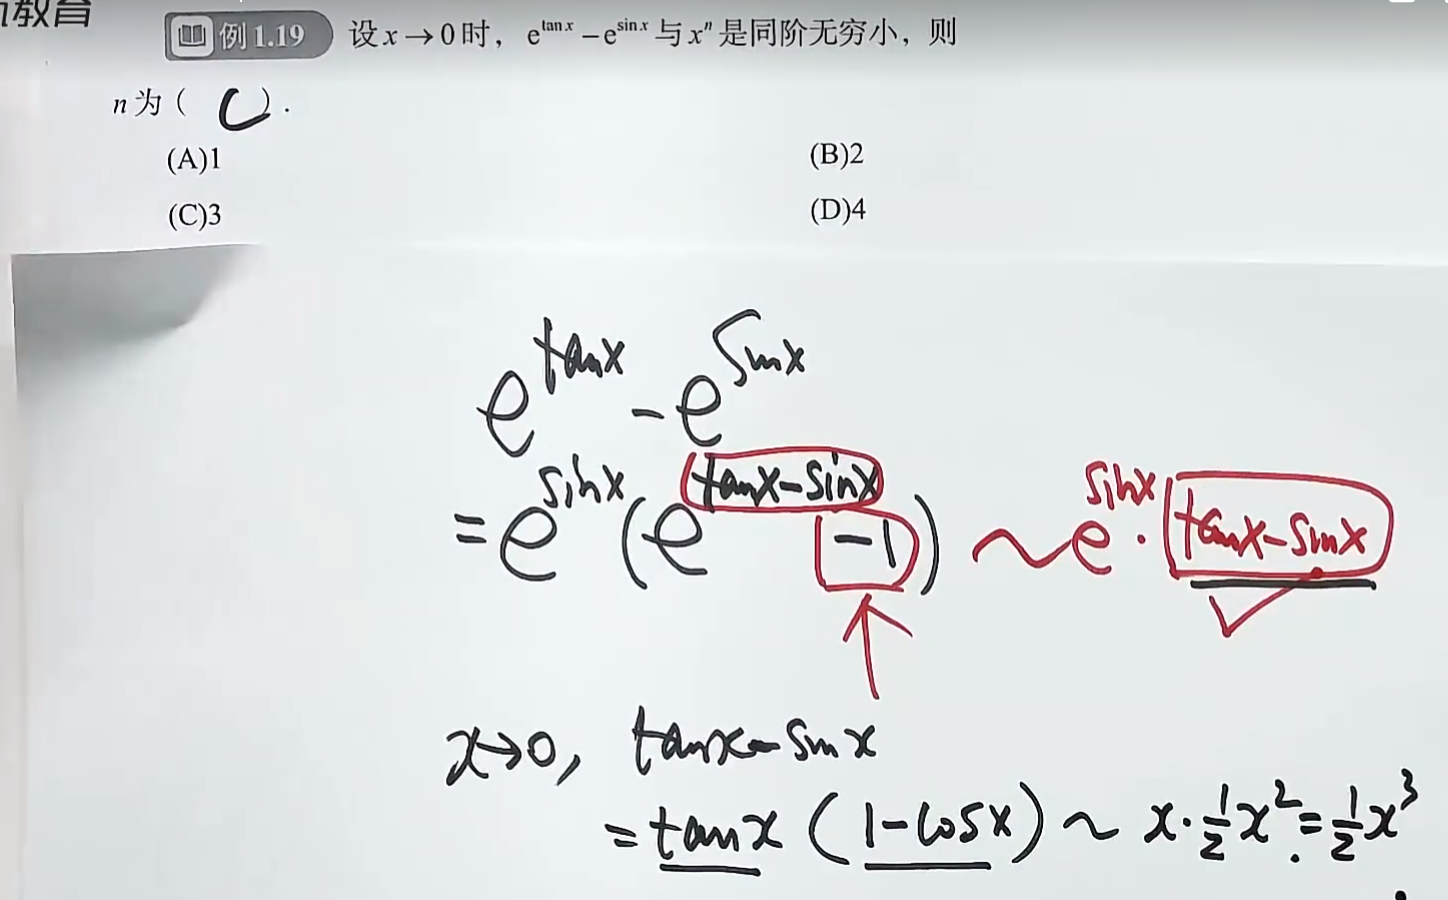 教育
例1.19 设x→0时，e^{tan x}－e^{sin x}与x^n是同阶无穷小，则
n为（ C ）.
(A)1 (B)2
(C)3 (D)4
e^{tanx} - e^{sinx}
= e^{sinx}(e^{tanx-sinx} -1) ~ e^{sinx}·tanx-sinx
x→0, tanx-sinx
= tanx (1-cosx) ~ x·\frac{1}{2}x^2 = \frac{1}{2}x^3